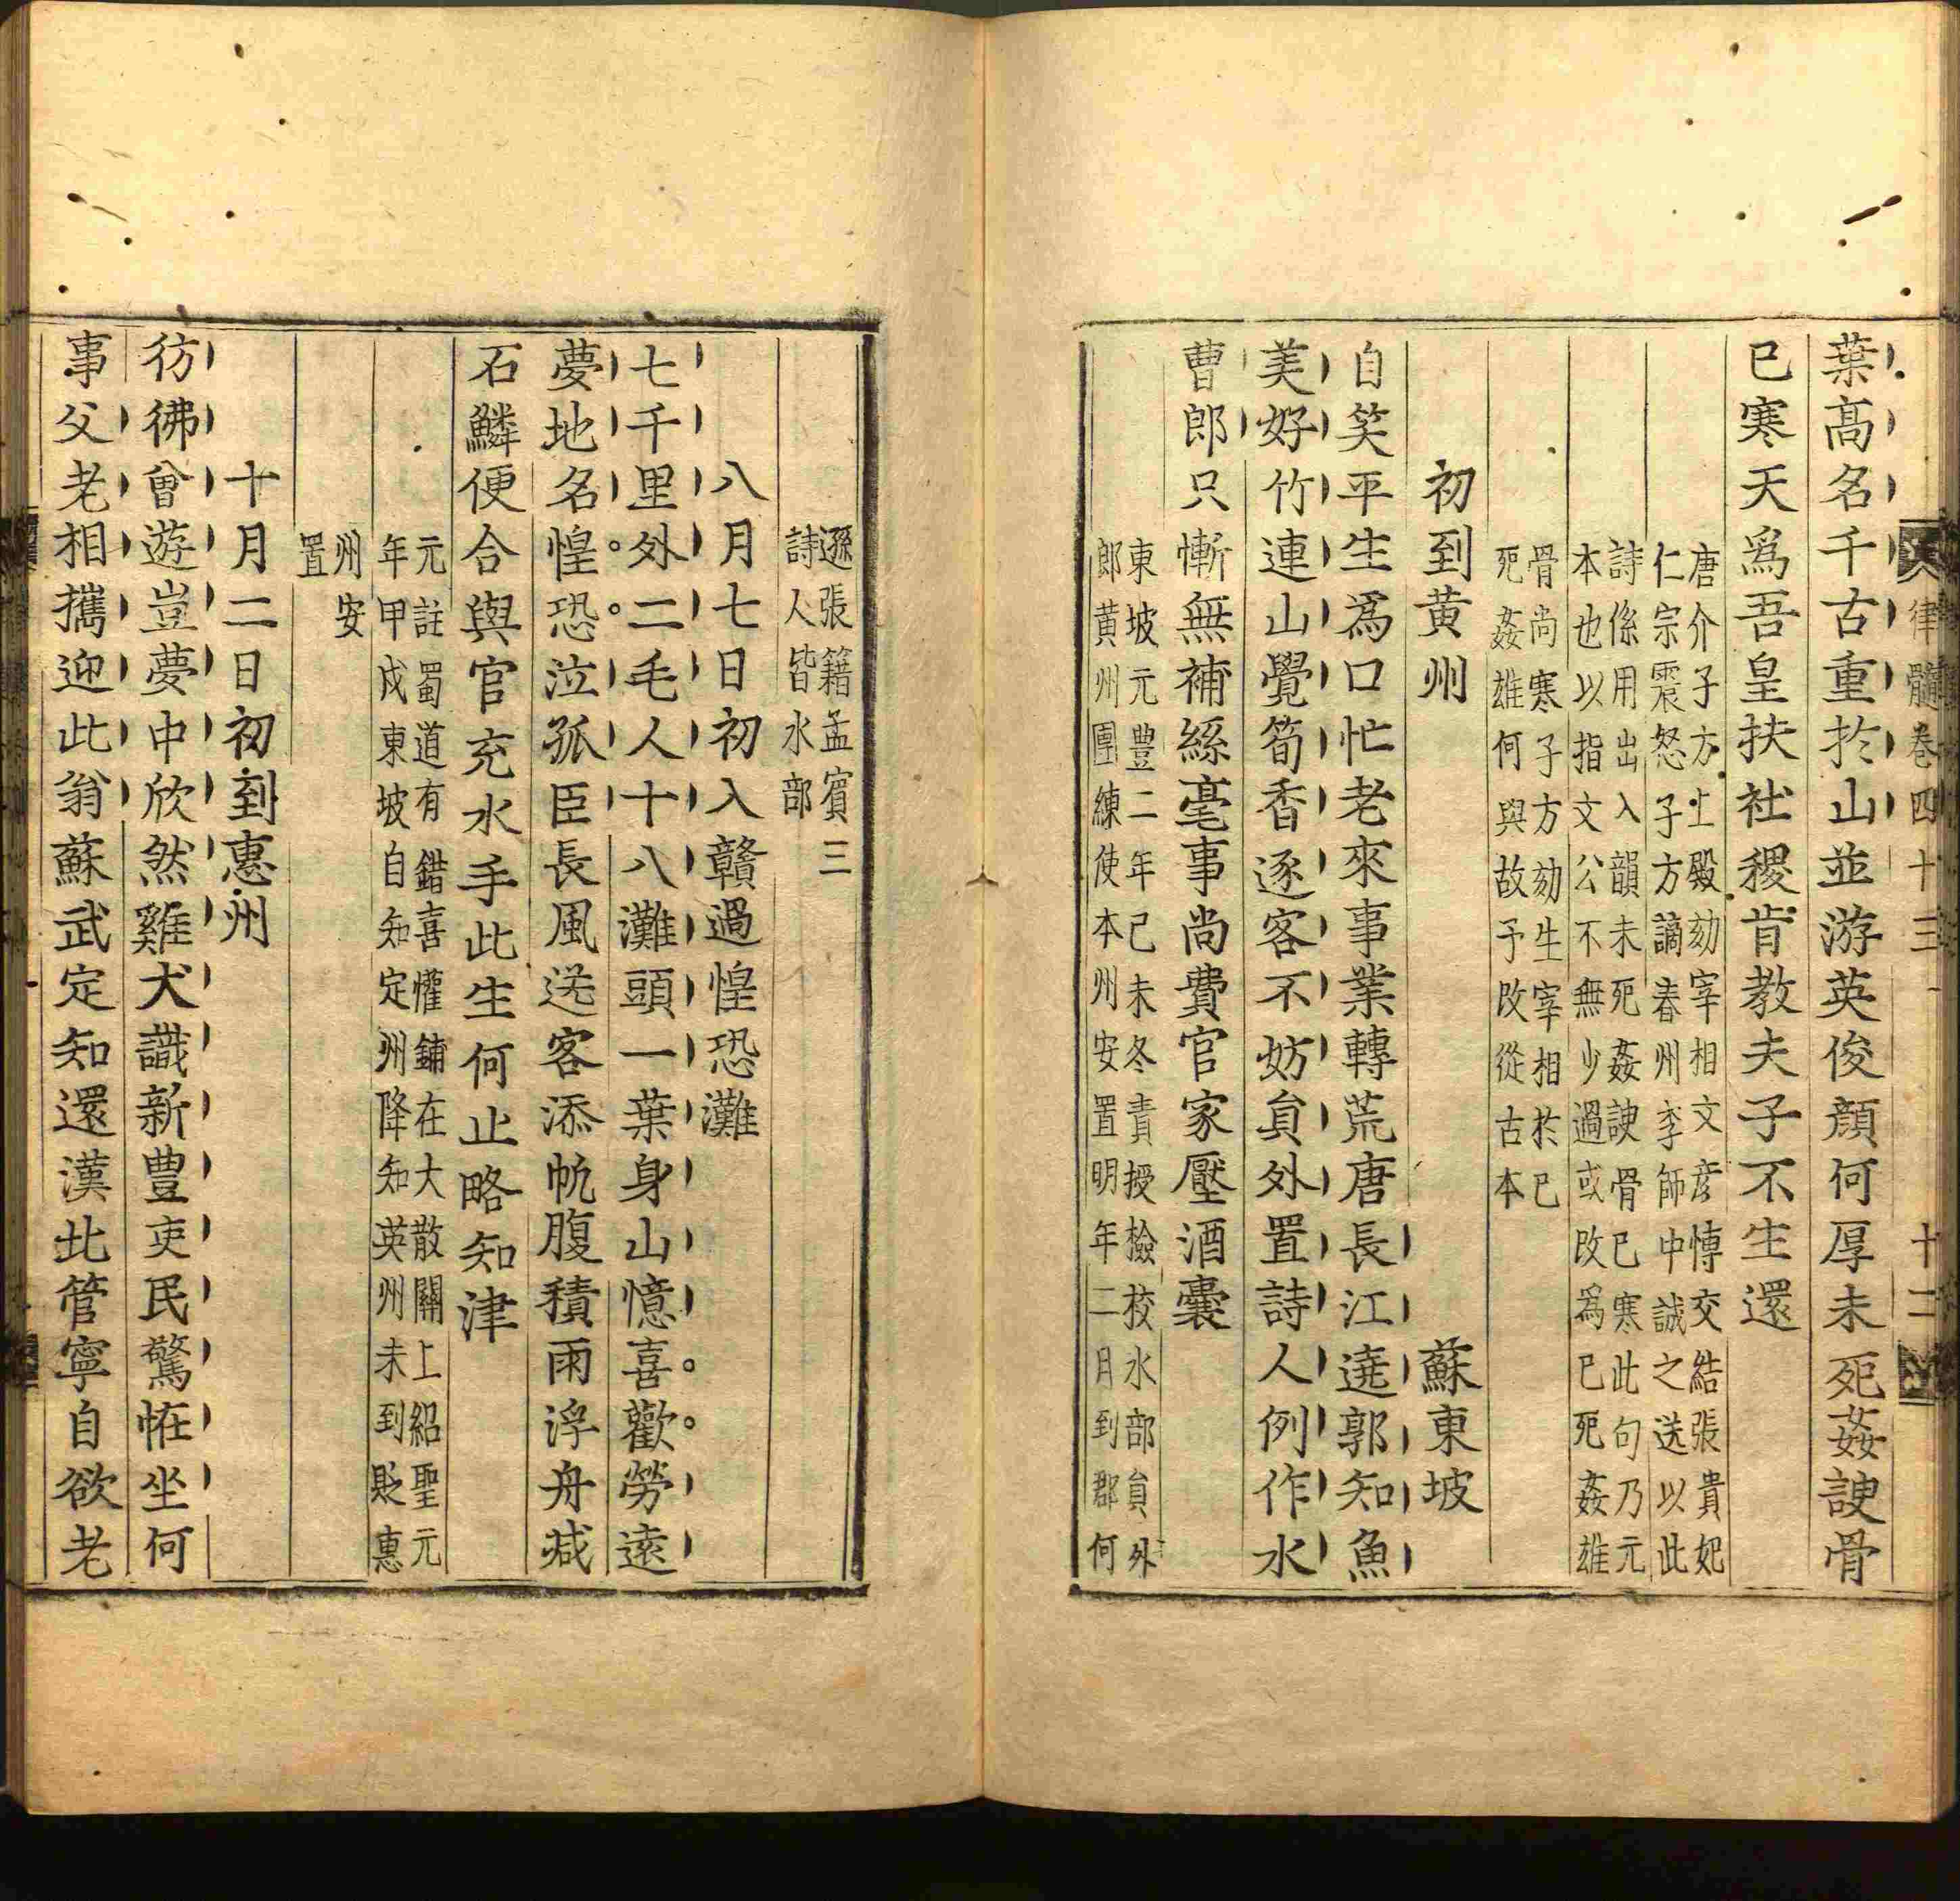 律髓卷四十三 十二
葉高名千古重於山並游英俊顔何厚未死姦諛骨
已寒天爲吾皇扶社稷肯教夫子不生還
唐介子方上殿劾宰相文彦愽交結張貴妃
仁宗震怒子方謫春州李師中誠之送以此
詩係用出入韻未死姦諛骨已寒此句乃元
本也以指文公不無少過或改爲已死姦雄
骨尚寒子方劾生宰相於已
死姦雄何與故予改從古本
初到黄州 蘇東坡
自笑平生爲口忙老來事業轉荒唐長江遶郭知魚
美好竹連山覺筍香逐客不妨貟外置詩人例作水
曹郎只慚無補絲毫事尚費官家壓酒囊
東坡元豐二年己未冬責授撿校水部貟外
郎黄州團練使本州安置明年二月到郡何
遜張籍孟賓三
詩人皆水部
八月七日初入贛過惶恐灘
七千里外二毛人十八灘頭一葉身山憶喜歡勞遠
夢地名惶恐泣孤臣長風送客添帆腹積雨浮舟减
石鱗便合與官充水手此生何止略知津
元註蜀道有錯喜懽鋪在大散關上紹聖元
年甲戌東坡自知定州降知英州未到貶惠
州安
置
十月二日初到惠州
彷彿曾遊豈夢中欣然雞犬識新豊吏民驚恠坐何
事父老相攜迎此翁蘇武定知還漢北管寧自欲老